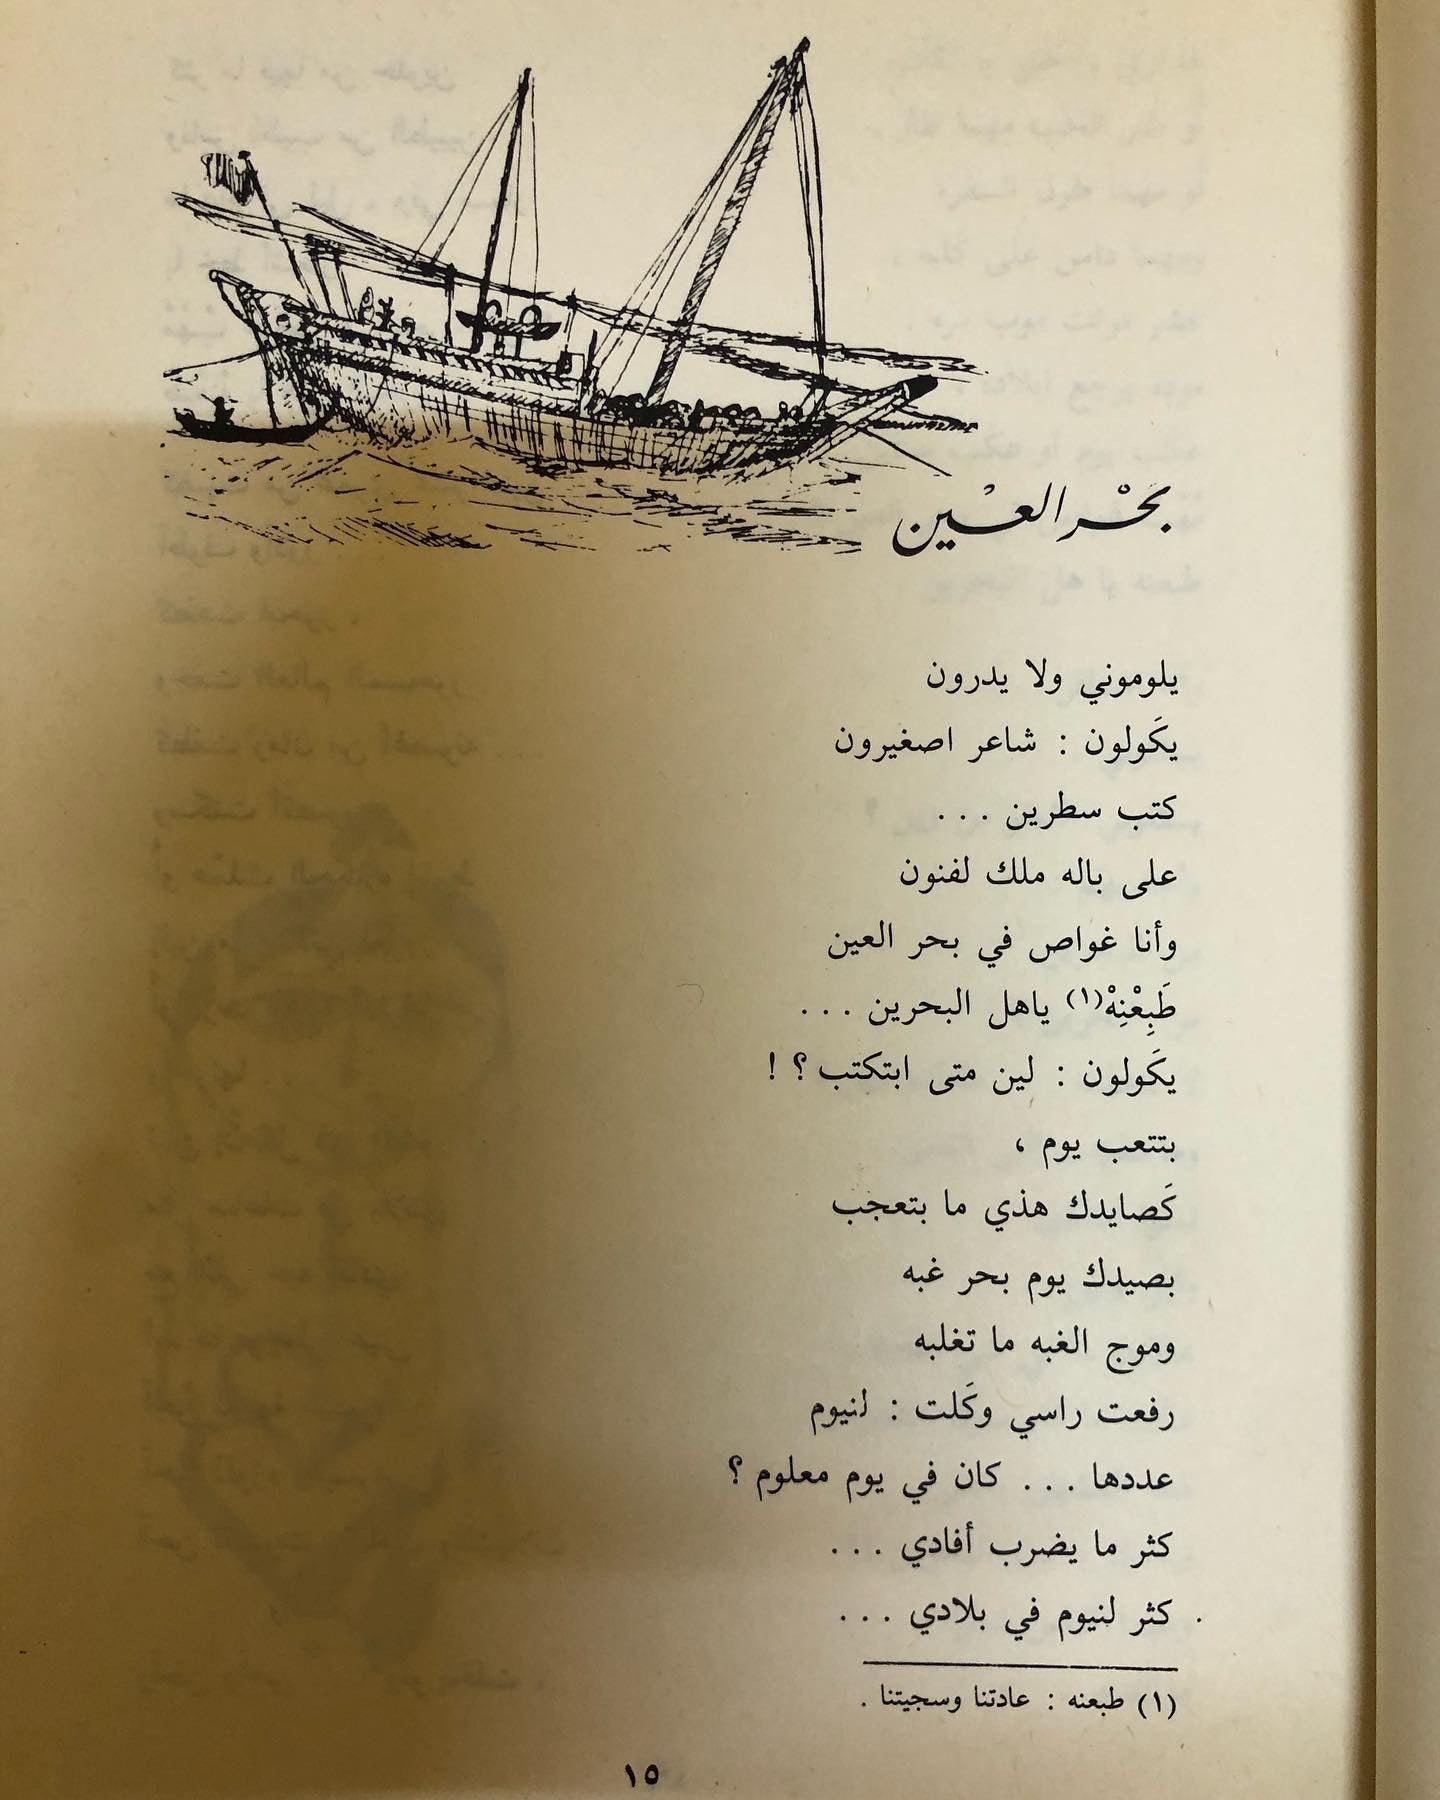 بَحْر العَيْن
يلوموني ولا يدرون
يكَولون : شاعر اصغيرون
كتب سطرين . . .
على باله ملك لفنون
وأنا غواص في بحر العين
طَبِعْنِهْ(١) ياهل البحرين . . .
يكَولون : لين متى ابتكتب ؟ !
بتتعب يوم ،
كَصايدك هذي ما بتعجب
بصيدك يوم بحر غبه
وموج الغبه ما تغلبه
رفعت راسي وكَلت : لنيوم
عددها . . . كان في يوم معلوم ؟
كثر ما يضرب أفادي . . .
كثر لنيوم في بلادي . . .
(١) طبعنه : عادتنا وسجيتنا .
١٥